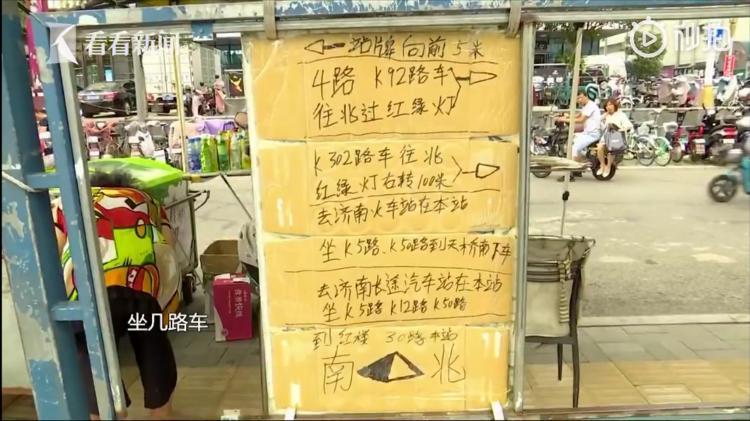 看看新闻
秒拍
站牌向前5米
4路 K92路车
往北过红绿灯
K302路车往北
红绿灯右转100米
去济南火车站在本站
坐K5路、K50路到天桥南下车
去济南长途汽车站在本站
坐K5路K12路K50路
到红楼 30路本站
南 北
坐几路车